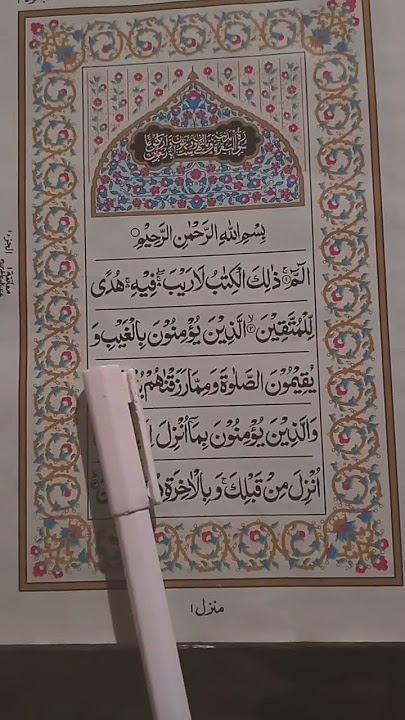 بِسْمِ اللهِ الرَّحْمٰنِ الرَّحِیْمِ
الٓمّٓ ۚ﴿۱﴾ ذٰلِكَ الْكِتٰبُ لَا رَیْبَ ۖۛ فِیْهِ ۚۛ هُدًی
لِّلْمُتَّقِیْنَ ۙ﴿۲﴾ الَّذِیْنَ یُؤْمِنُوْنَ بِالْغَیْبِ وَ
یُقِیْمُوْنَ الصَّلٰوةَ وَمِمَّا رَزَقْنٰهُمْ
وَالَّذِیْنَ یُؤْمِنُوْنَ بِمَاۤ اُنْزِلَ
اُنْزِلَ مِنْ قَبْلِكَ ۚ وَبِالْاٰخِرَةِ
منزل ۱